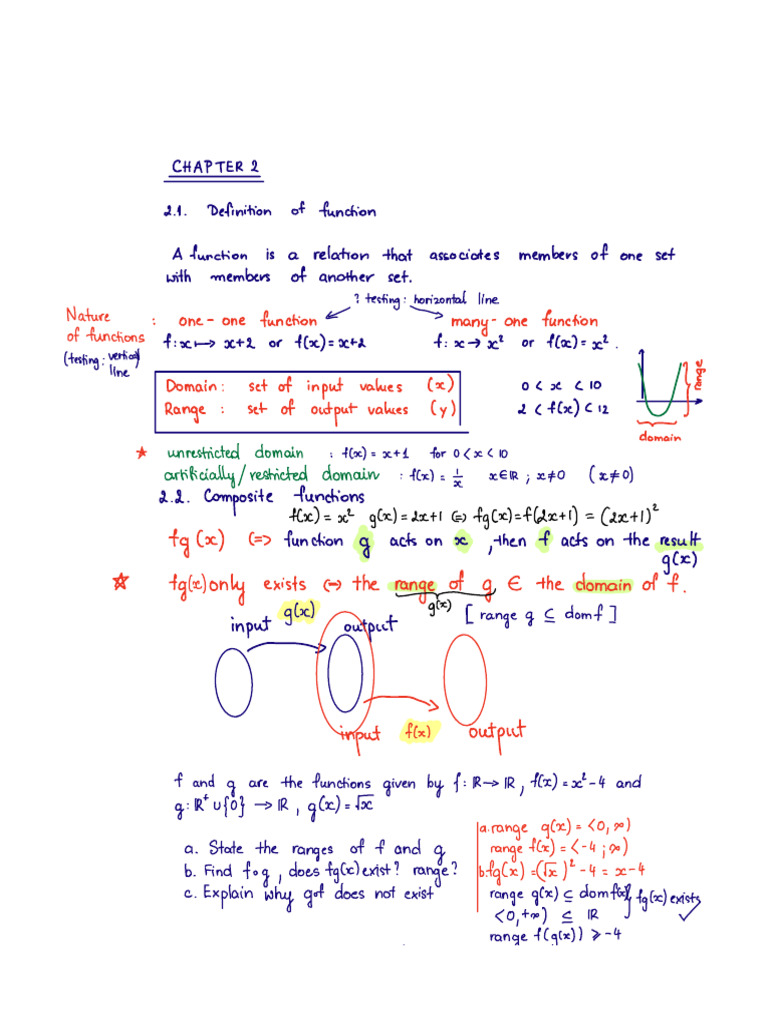 CHAPTER 2
2.1. Definition of function
A function is a relation that associates members of one set
with members of another set.
? testing: horizontal line
Nature : one-one function many-one function
of functions f: x ↦ x+2 or f(x) = x+2 f: x → x² or f(x) = x².
(testing: vertical
line
Domain: set of input values (x) 0 < x < 10
Range : set of output values (y) 2 < f(x) < 12
range
domain
* unrestricted domain : f(x) = x+1 for 0 < x < 10
artificially/restricted domain : f(x) = 1/x x∈ℝ ; x≠0 (x≠0)
2.2. Composite functions
f(x) = x² g(x) = 2x+1 (=) fg(x) = f(2x+1) = (2x+1)²
fg(x) (=> function g acts on x, then f acts on the result
g(x)
☆ fg(x) only exists (→ the range of g ∈ the domain of f.
g(x) [range g ⊆ domf]
input g(x) output
input f(x) output
f and g are the functions given by f: ℝ → ℝ, f(x) = x²-4 and
g: ℝ⁺ ∪{0} → ℝ, g(x) = √x
a. State the ranges of f and g
b. Find fog, does fg(x) exist? range?
c. Explain why gof does not exist
a. range g(x) = <0, ∞)
range f(x) = <-4 ; ∞)
b. fg(x) = (√x)² - 4 = x-4
range g(x) ⊆ domf(x) } fg(x) exists ✓
<0, +∞) ⊆ ℝ
range f(g(x)) ⩾ -4